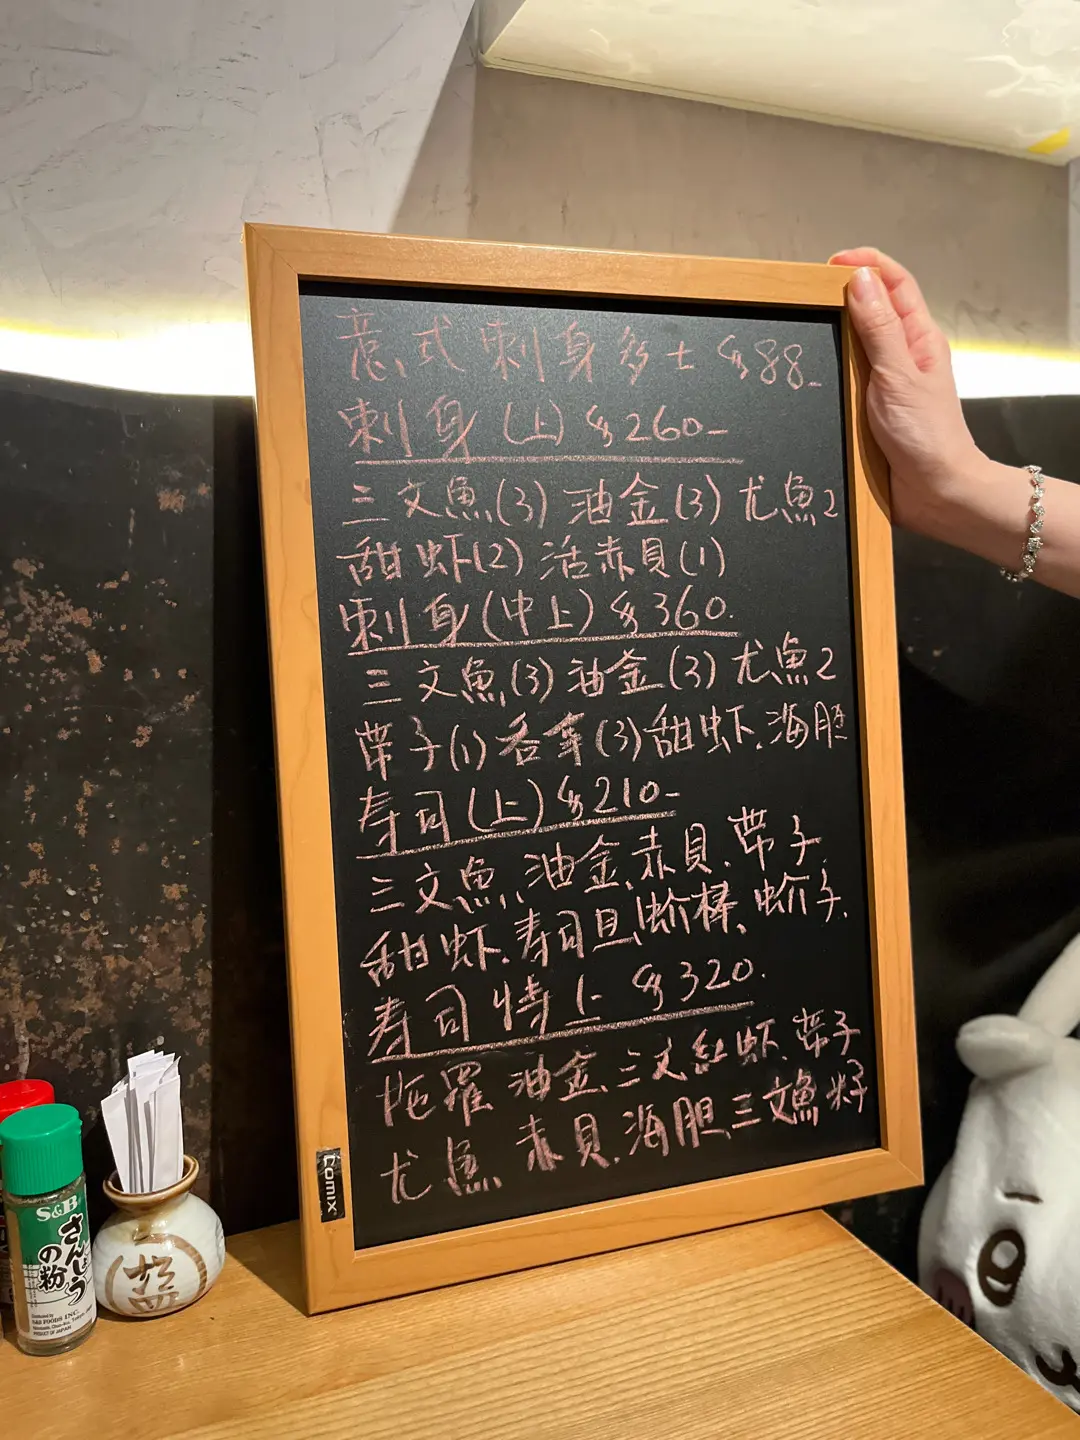 意式刺身多士 $88-
刺身(上) $260-
三文魚(3) 油金(3) 尤魚2
甜虾(2) 活赤貝(1)
刺身(中上) $360.
三文魚(3) 油金(3) 尤魚2
带子(1) 吞拿(3) 甜虾.海胆
寿司(上) $210-
三文魚、油金、赤貝.带子
甜虾.寿司旦、蚧棒、蚧子.
寿司特上 $320.
拖羅 油金、三文 紅虾.带子
尤魚 赤貝.海胆 三文魚籽
comix
S&B
さんしょうの粉
S&B FOODS INC.
PRODUCT OF JAPAN